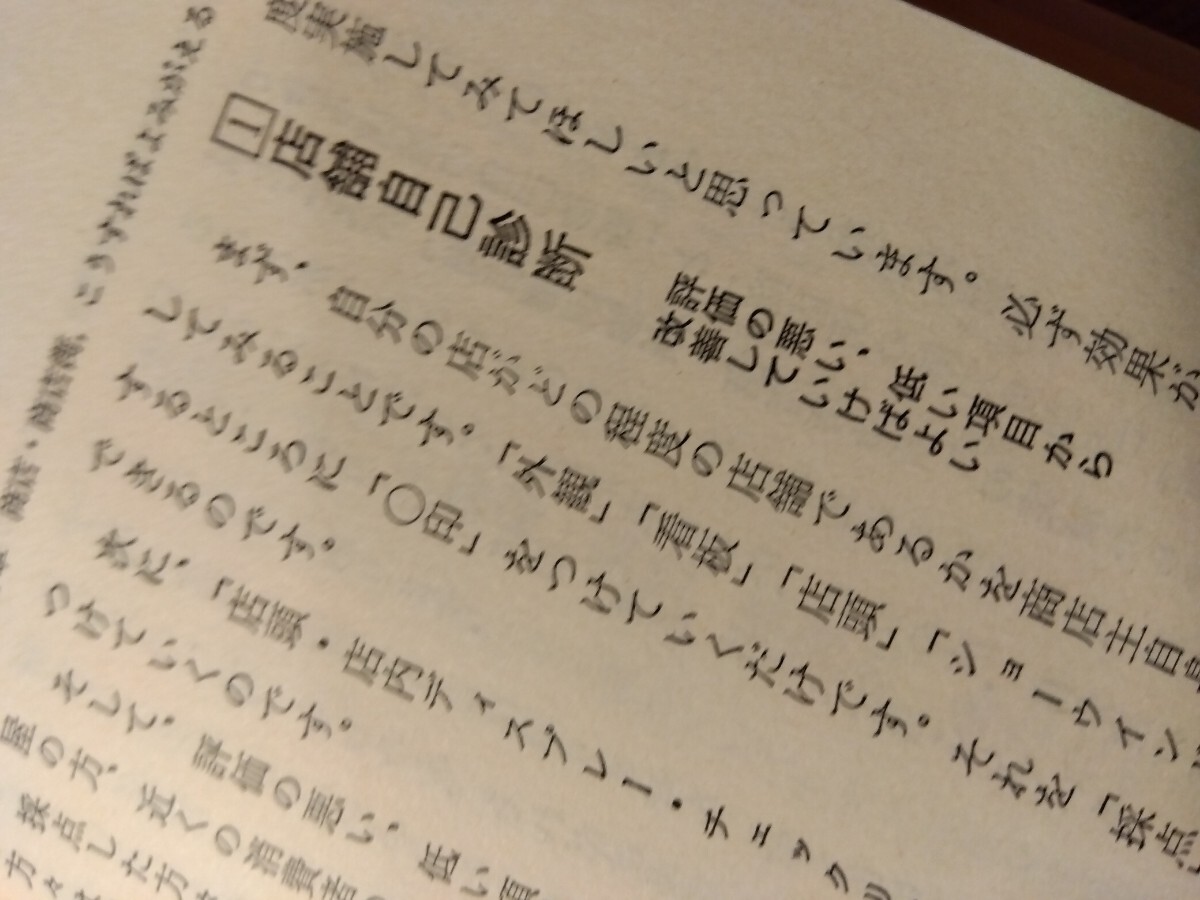 度実施してみてほしいと思っています。必ず効果が
1 店舗自己診断
評価の悪い、低い項目から
改善していけばよい
まず、自分の店がどの程度の店舗であるかを商店主自身
してみることです。「外観」「看板」「店頭」「ショーウイン
するところに「〇印」をつけていくだけです。それを「採点
できるのです。
次に、「店頭・店内ディスプレー・チェック
つけていくのです。
そして、評価の悪い、低い項
屋の方、近くの消費者の
採点した方
方々
こうすればよみがえる
商店・商店街